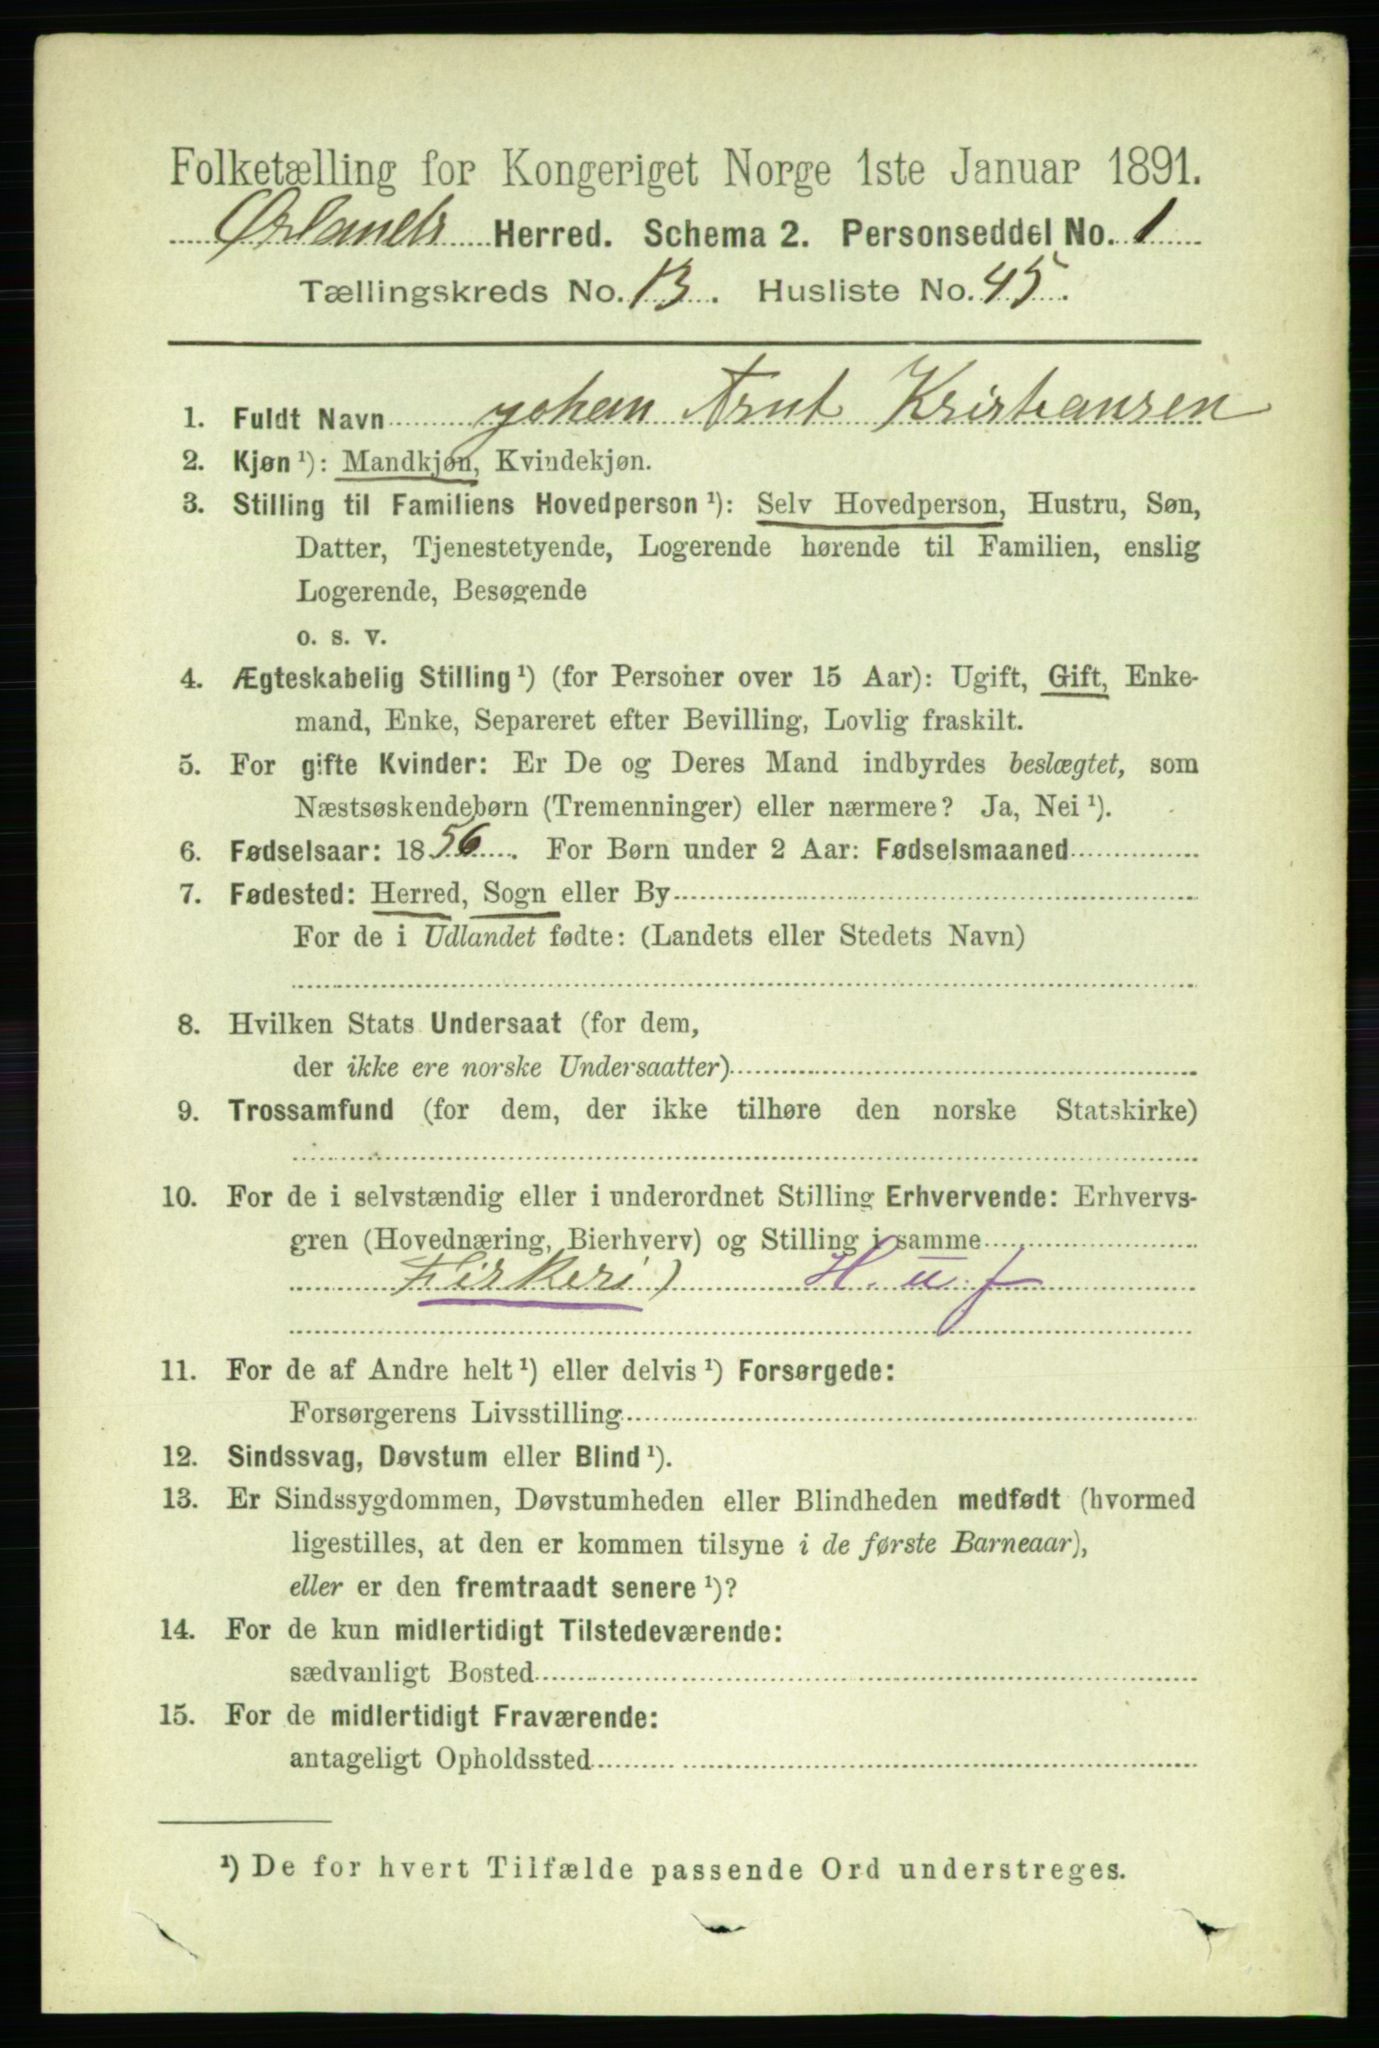 Folketælling for Kongeriget Norge 1ste Januar 1891.
Ørlands Herred. Schema 2. Personseddel No. 1
Tællingskreds No. 13. Husliste No. 45.
1. Fuldt Navn Johan Arnt Kristiansen
2. Kjøn ¹): Mandkjøn, Kvindekjøn.
3. Stilling til Familiens Hovedperson ¹): Selv Hovedperson, Hustru, Søn,
Datter, Tjenestetyende, Logerende hørende til Familien, enslig
Logerende, Besøgende
o. s. v.
4. Ægteskabelig Stilling ¹) (for Personer over 15 Aar): Ugift, Gift, Enke-
mand, Enke, Separeret efter Bevilling, Lovlig fraskilt.
5. For gifte Kvinder: Er De og Deres Mand indbyrdes beslægtet, som
Næstsøskendebørn (Tremenninger) eller nærmere? Ja, Nei ¹).
6. Fødselsaar: 1856. For Børn under 2 Aar: Fødselsmaaned
7. Fødested: Herred, Sogn eller By
For de i Udlandet fødte: (Landets eller Stedets Navn)
8. Hvilken Stats Undersaat (for dem,
der ikke ere norske Undersaatter)
9. Trossamfund (for dem, der ikke tilhøre den norske Statskirke)
10. For de i selvstændig eller i underordnet Stilling Erhvervende: Erhvervs-
gren (Hovednæring, Bierhverv) og Stilling i samme
Fiskeri) H. u. f
11. For de af Andre helt ¹) eller delvis ¹) Forsørgede:
Forsørgerens Livsstilling
12. Sindssvag, Døvstum eller Blind ¹).
13. Er Sindssygdommen, Døvstumheden eller Blindheden medfødt (hvormed
ligestilles, at den er kommen tilsyne i de første Barneaar),
eller er den fremtraadt senere ¹)?
14. For de kun midlertidigt Tilstedeværende:
sædvanligt Bosted
15. For de midlertidigt Fraværende:
antageligt Opholdssted
¹) De for hvert Tilfælde passende Ord understreges.